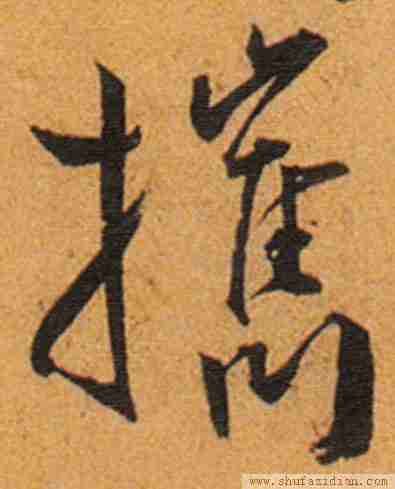 攜
www.shufazidian.com